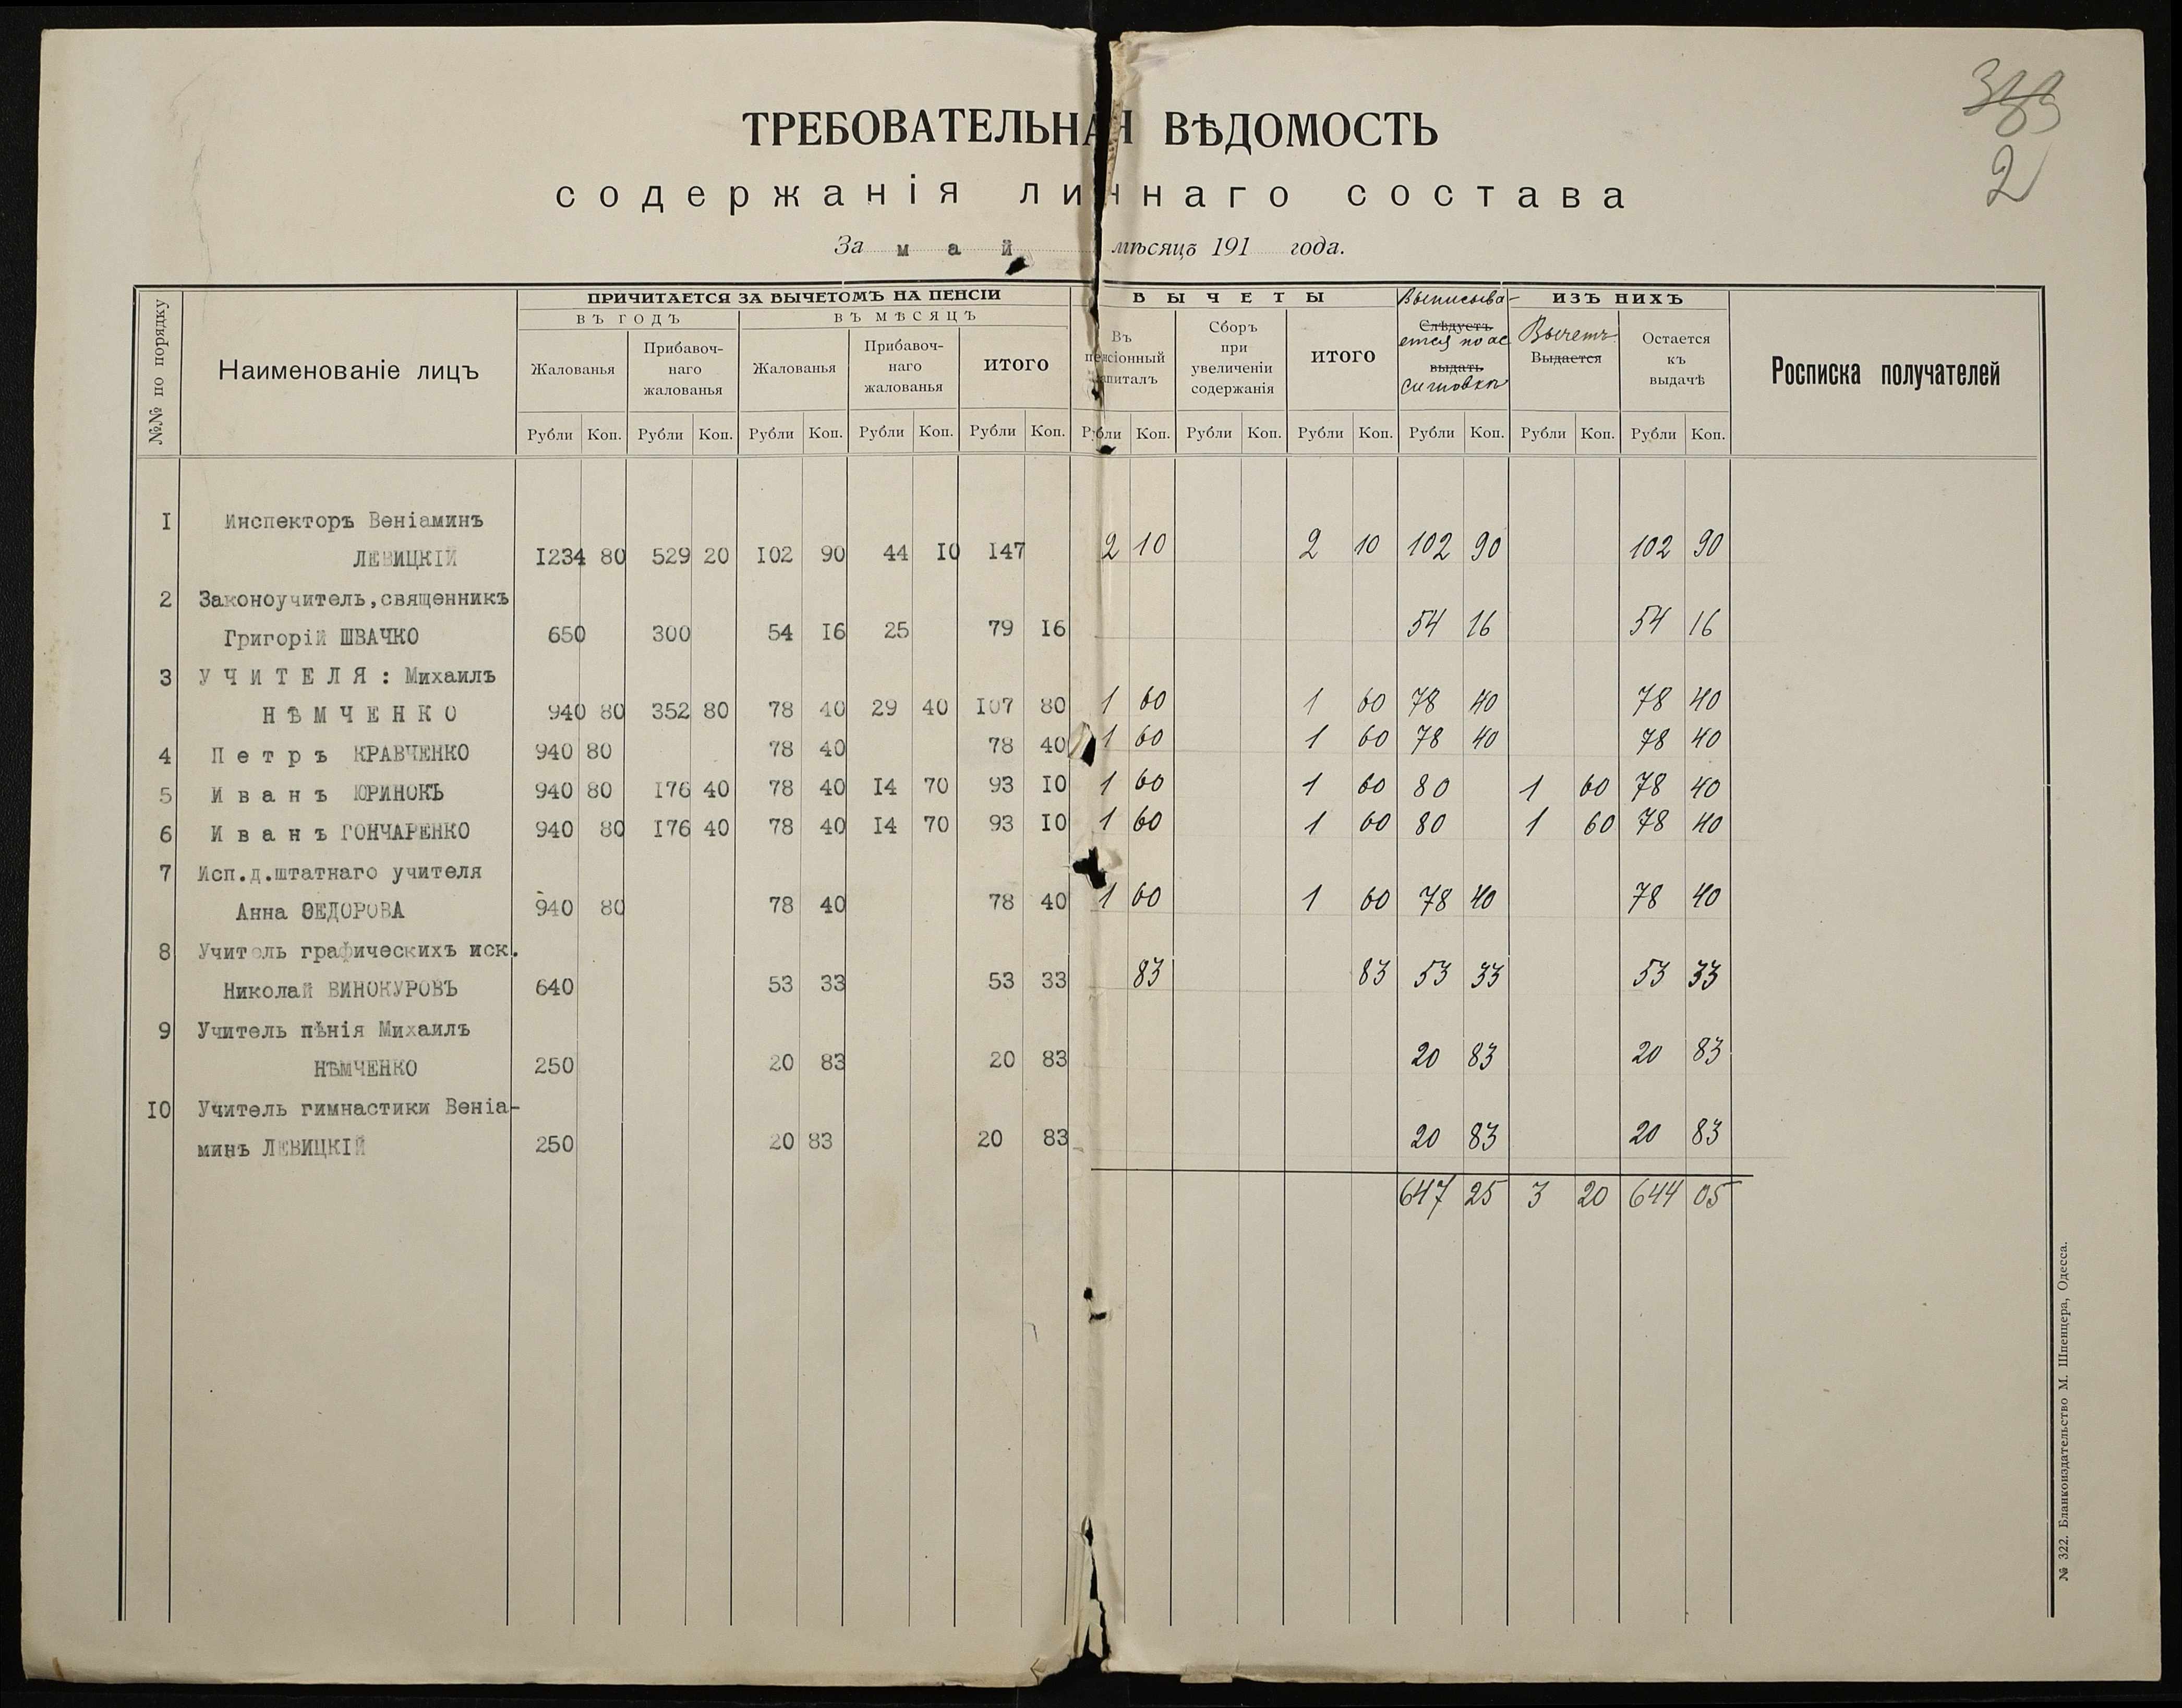 383
2
ТРЕБОВАТЕЛЬНАЯ ВѢДОМОСТЬ
содержанія личнаго состава
За май мѣсяцъ 191 года.
№№ по порядку
Наименованіе лицъ
ПРИЧИТАЕТСЯ ЗА ВЫЧЕТОМЪ НА ПЕНСІИ
ВЪ ГОДЪ
ВЪ МѢСЯЦЪ
Жалованья
Прибавоч-
наго
жалованья
Жалованья
Прибавоч-
наго
жалованья
ИТОГО
ВЫЧЕТЫ
Въ
пенсіонный
капиталъ
Сборъ
при
увеличеніи
содержанія
ИТОГО
Выписыва-
Слѣдуетъ
ется по ас
выдать
сигновкѣ
ИЗЪ НИХЪ
Вычетъ
Выдается
Остается
къ
выдачѣ
Росписка получателей
Рубли Коп. Рубли Коп. Рубли Коп. Рубли Коп. Рубли Коп. Рубли Коп. Рубли Коп. Рубли Коп. Рубли Коп. Рубли Коп. Рубли Коп.
I Инспекторъ Веніаминъ
ЛЕВИЦКІЙ I234 80 529 20 I02 90 44 I0 I47 2 10 2 10 102 90 102 90
2 Законоучитель,священникъ
Григорій ШВАЧКО 650 300 54 I6 25 79 I6 54 16 54 16
3 УЧИТЕЛЯ: Михаилъ
НѢМЧЕНКО 940 80 352 80 78 40 29 40 I07 80 1 60 1 60 78 40 78 40
4 Петръ КРАВЧЕНКО 940 80 78 40 78 40 1 60 1 60 78 40 78 40
5 Иванъ ЮРИНОКЪ 940 80 I76 40 78 40 I4 70 93 I0 1 60 1 60 80 1 60 78 40
6 Иванъ ГОНЧАРЕНКО 940 80 I76 40 78 40 I4 70 93 I0 1 60 1 60 80 1 60 78 40
7 Исп.д.штатнаго учителя
Анна ѲЕДОРОВА 940 80 78 40 78 40 1 60 1 60 78 40 78 40
8 Учитель графическихъ иск.
Николай ВИНОКУРОВЪ 640 53 33 53 33 83 83 53 33 53 33
9 Учитель пѣнія Михаилъ
НѢМЧЕНКО 250 20 83 20 83 20 83 20 83
I0 Учитель гимнастики Веніа-
минъ ЛЕВИЦКІЙ 250 20 83 20 83 20 83 20 83
647 25 3 20 644 05
№ 322. Бланкоиздательство М. Шпенцера, Одесса.